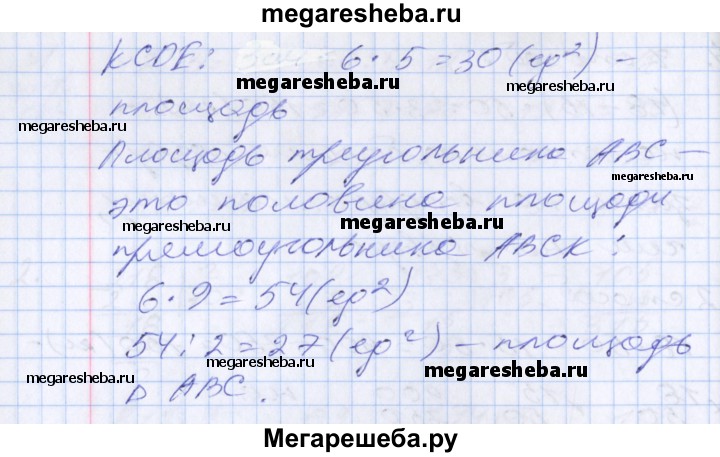 megaresheba.ru
KCDE: 6 · 5 = 30 (ед²) –
megaresheba.ru
megaresheba.ru
площадь
megaresheba.ru
Площадь треугольника ABC –
megaresheba.ru
это половина площади
megaresheba.ru
megaresheba.ru
прямоугольника ABCK:
6 · 9 = 54 (ед²)
54 : 2 = 27 (ед²) – площадь
megaresheba.ru
megaresheba.ru
megaresheba.ru
ABC.
Мегарешеба.ру